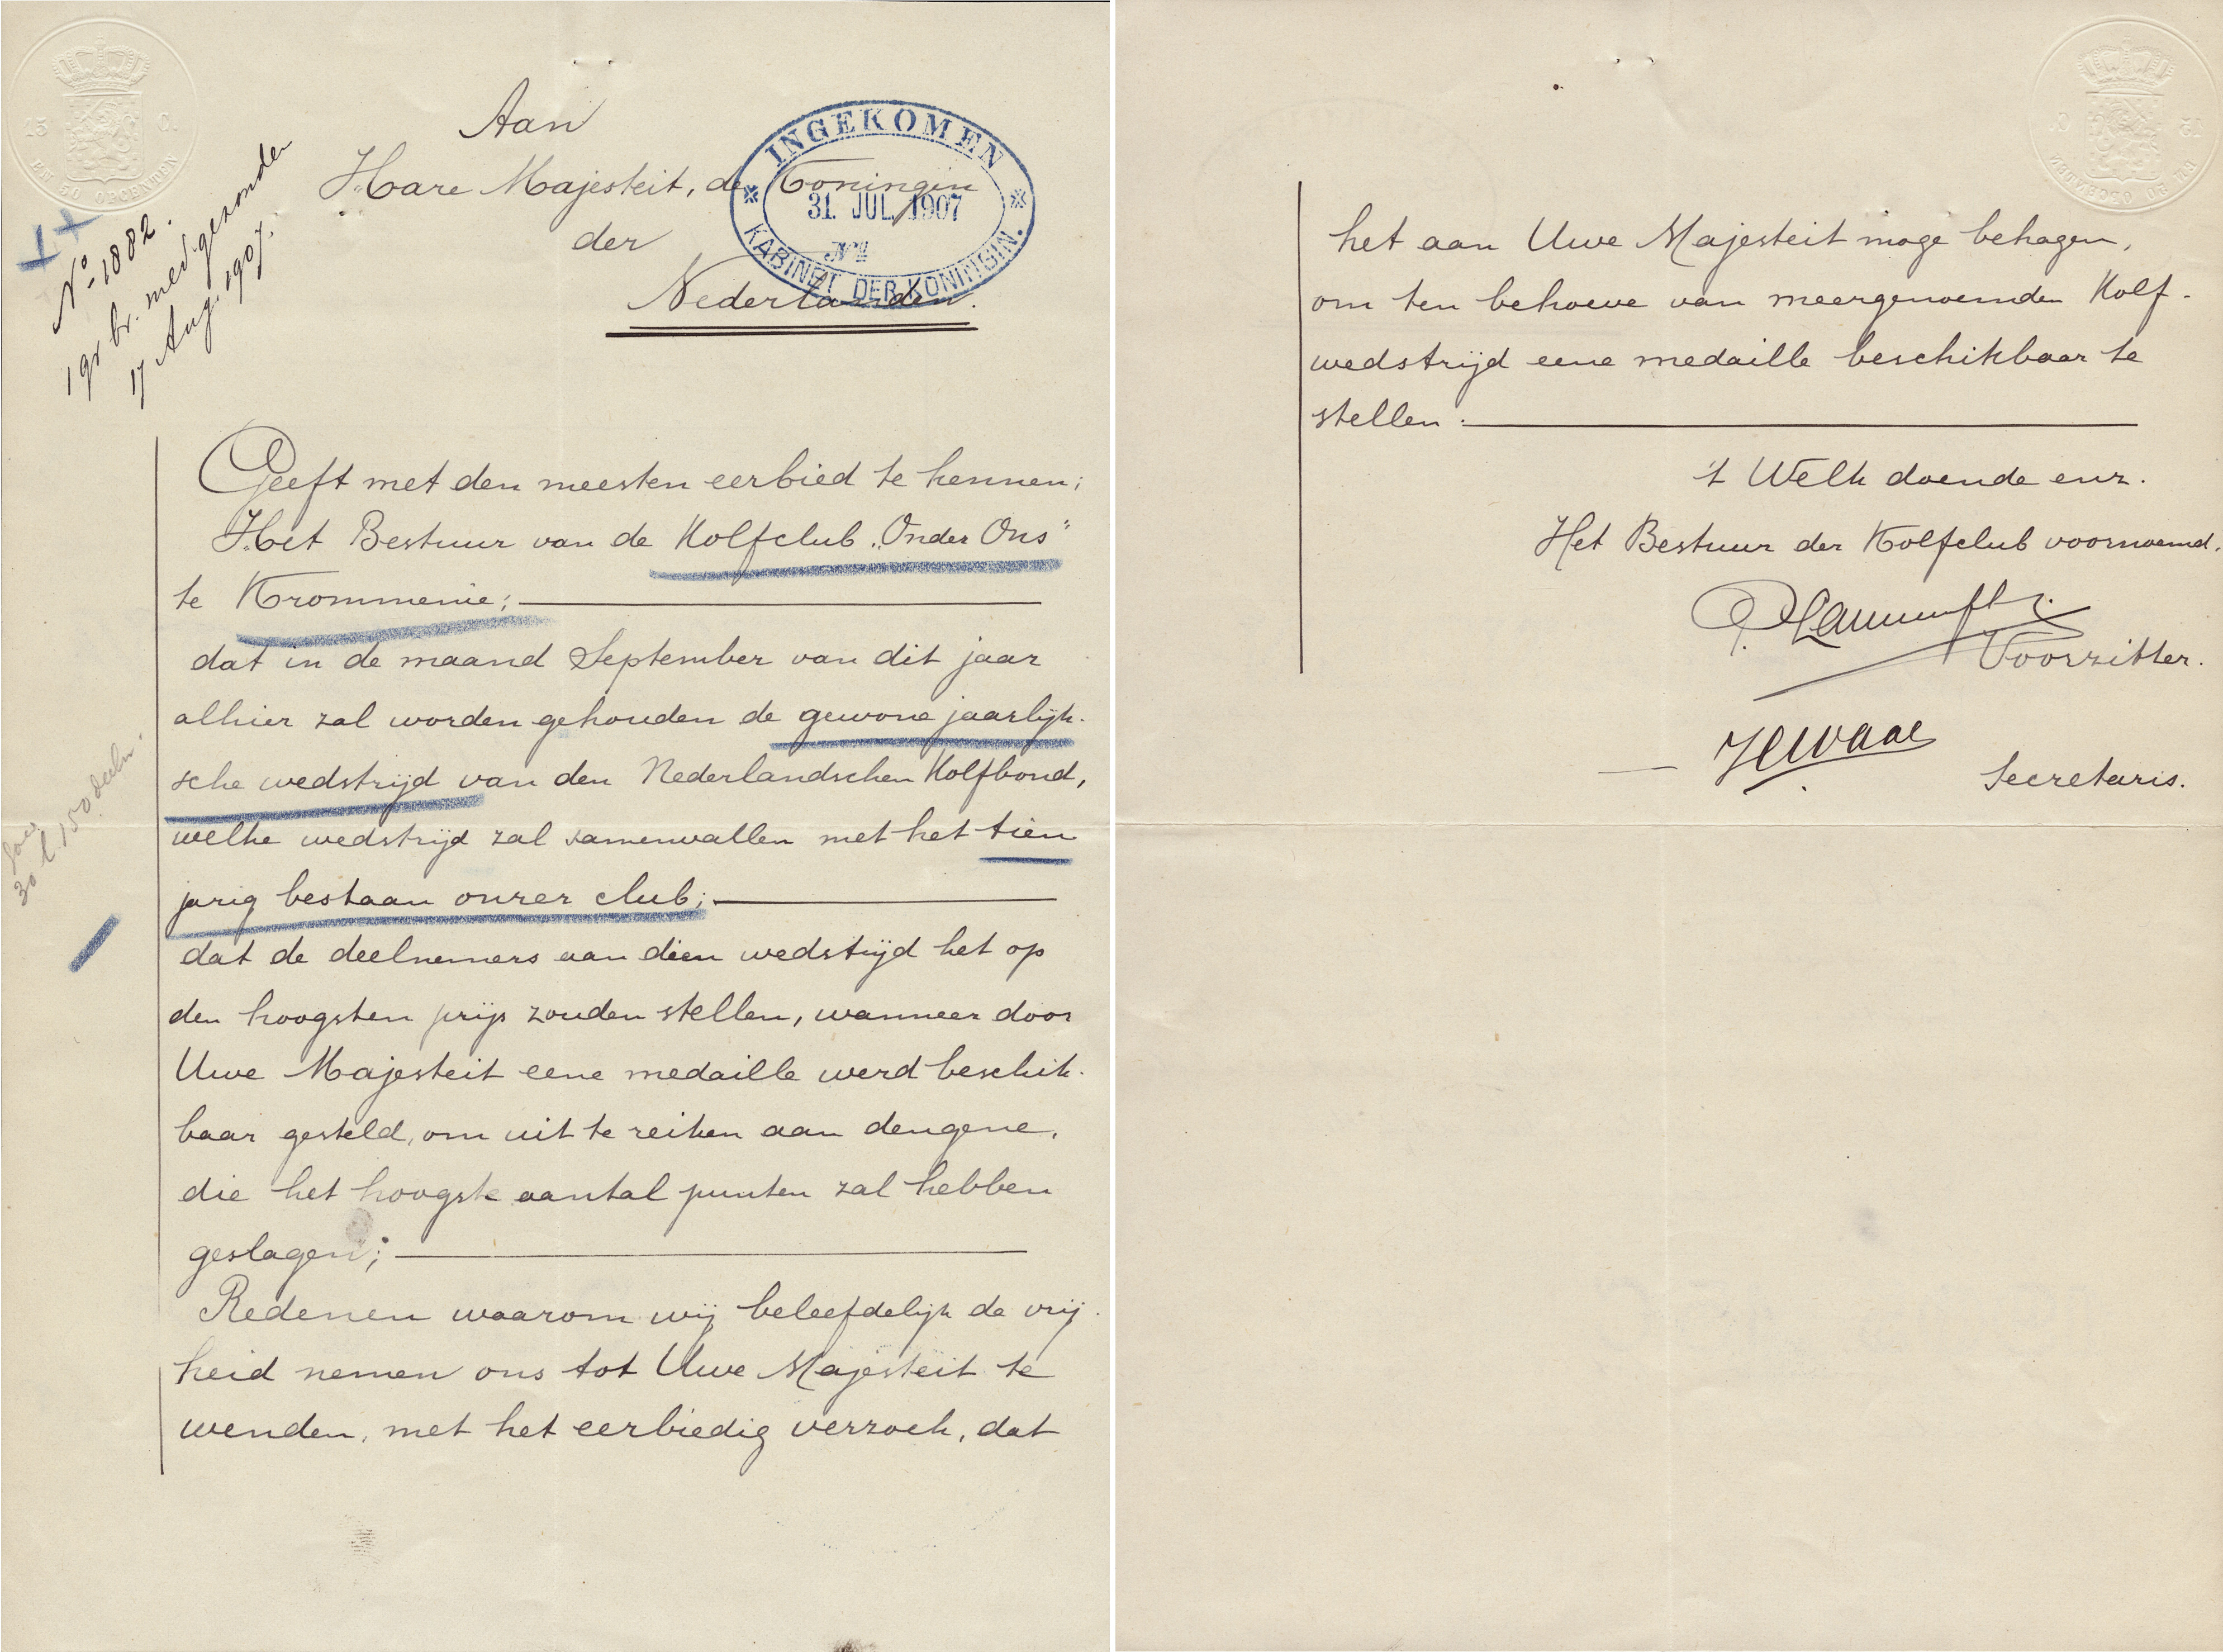 15 C.
EN 50 OPCENTEN
No 1882.
1 gr. br. med. gezonden
17 Aug. 1907.
Aan
Hare Majesteit, de Koningin
der
Nederlanden.
INGEKOMEN
31. JUL. 1907
No
KABINET DER KONINGIN.
Geeft met den meesten eerbied te kennen;
Het Bestuur van de Kolfclub „Onder Ons"
te Krommenie;
dat in de maand September van dit jaar
alhier zal worden gehouden de gewone jaarlijk-
sche wedstrijd van den Nederlandschen Kolfbond,
welke wedstrijd zal samenvallen met het tien
jarig bestaan onzer club;
dat de deelnemers aan dien wedstrijd het op
den hoogsten prijs zouden stellen, wanneer door
Uwe Majesteit eene medaille werd beschik-
baar gesteld, om uit te reiken aan dengene,
die het hoogste aantal punten zal hebben
geslagen;
Redenen waarom wij beleefdelijk de vrij-
heid nemen ons tot Uwe Majesteit te
wenden, met het eerbiedig verzoek, dat
150 deeln.
het aan Uwe Majesteit moge behagen,
om ten behoeve van meergenoemden Kolf-
wedstrijd eene medaille beschikbaar te
stellen.
't Welk doende enz.
Het Bestuur der Kolfclub voornoemd.
Voorzitter.
Secretaris.